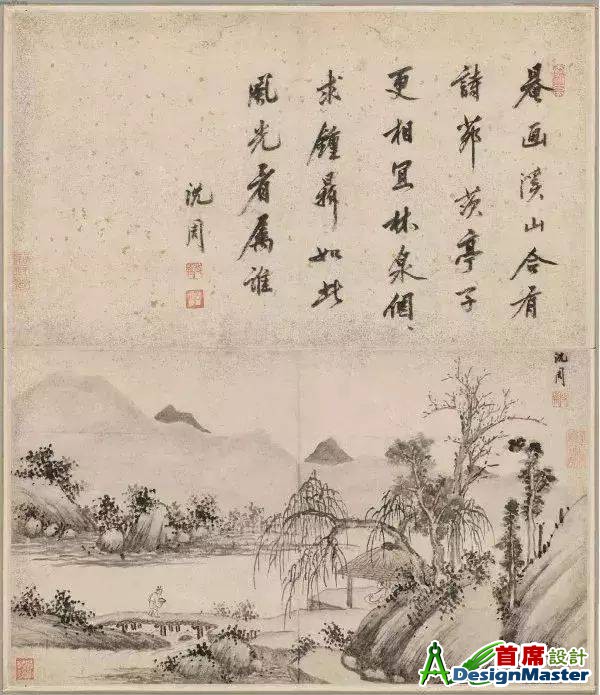 罨画溪山合有
詩茆茨亭子
更相宜林泉個、
求鐘鼎如此
風光看屬誰
沈周
沈周
首席設計
DesignMaster